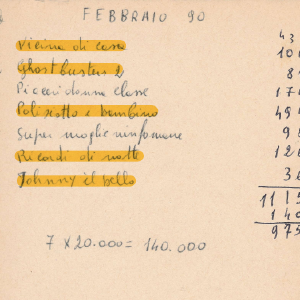 FEBBRAIO 90
Vicina di casa 43
Ghostbusters 2 10
Piccoli donna classe 8
Poliziotto e bambino 49
Super moglie ninfomane 9
Ricordi di notte 12
Johnny il bello 3
111
140
975
7 X 20.000 = 140.000